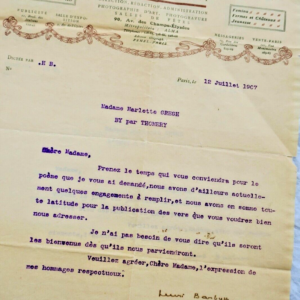 RÉDACTION ADMINISTRATION
90, Av. des Champs-Elysées
PARIS
Dicté par .H B.
Paris, le 12 Juillet 1907
Madame Marlette
BY par THOMERY
Chère Madame,
Prenez le temps qui vous conviendra pour le
poème que je vous ai demandé, nous avons d'ailleurs actuelle-
ment quelques engagements à remplir, et nous avons en somme tou-
te latitude pour la publication des vers que vous voudrez bien
nous adresser.
Je n'ai pas besoin de vous dire qu'ils seront
les bienvenus dès qu'ils nous parviendront.
Veuillez agréer, Chère Madame, l'expression de
mes hommages respectueux.